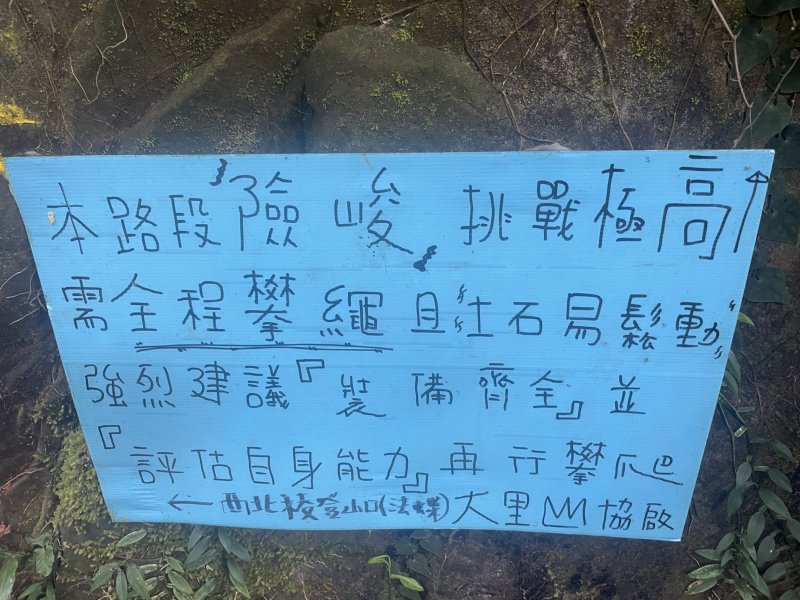 本路段險峻 挑戰極高↑
需全程攀繩且土石易鬆動
強烈建議『裝備齊全』並
『評估自身能力』再行攀爬
←西北稜登山口(法蝶) 大里山協啟